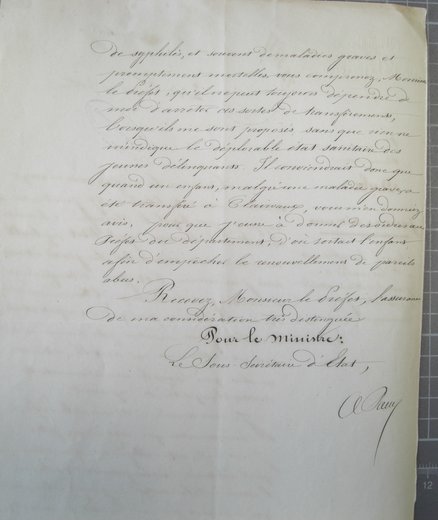 de syphilis, et souvent de maladies graves et
promptement mortelles, vous comprenez, Monsieur
le Préfet, qu'il ne peut toujours dépendre de
moi d'arrêter ces sortes de transfèrements,
lorsqu'ils me sont proposés sans que rien ne
m'indique le déplorable état sanitaire des
jeunes délinquants. Il conviendrait donc que
quand un enfant, malgré une maladie grave, a
été transféré à Clairvaux, vous m'en donniez
avis, pour que j'eusse à donner des ordres au
Préfet du département d'où sortait l'enfant
afin d'empêcher le renouvellement de pareils
abus.
Recevez, Monsieur le Préfet, l'assurance
de ma considération très distinguée
Pour le Ministre;
Le Sous-Secrétaire d'Etat,
12